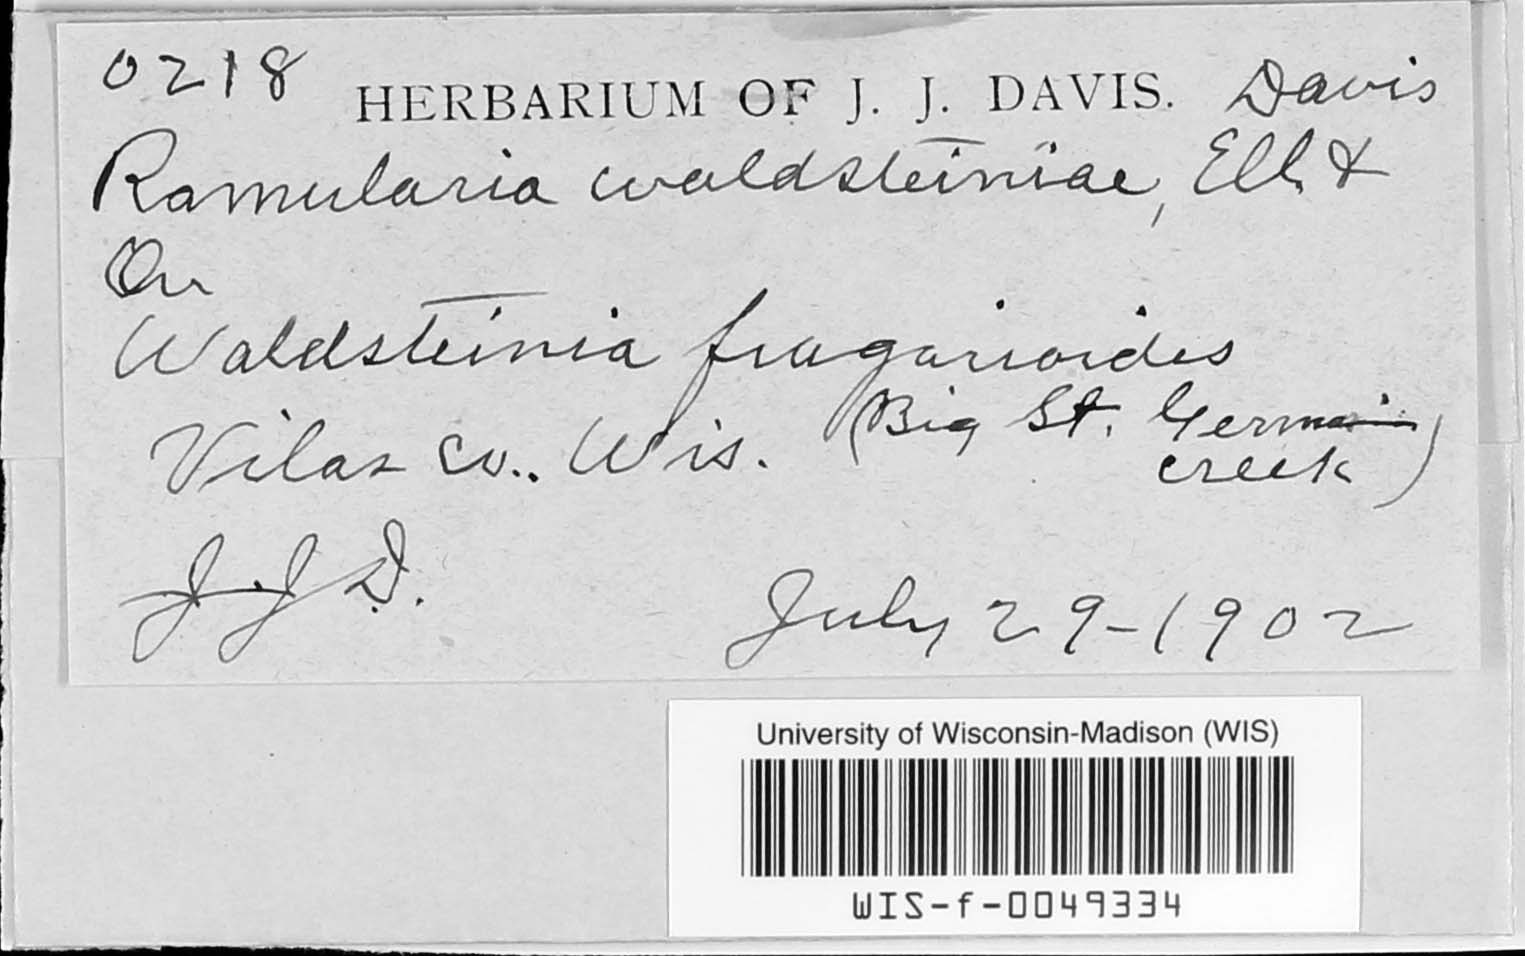 0218 HERBARIUM OF J. J. DAVIS. Davis
Ramularia waldsteiniae, Ell. &
On
Waldsteinia fragarioides
Vilas Co., Wis. (Big St. Germain
creek)
J. J. D.
July 29-1902
University of Wisconsin-Madison (WIS)
WIS-f-0049334